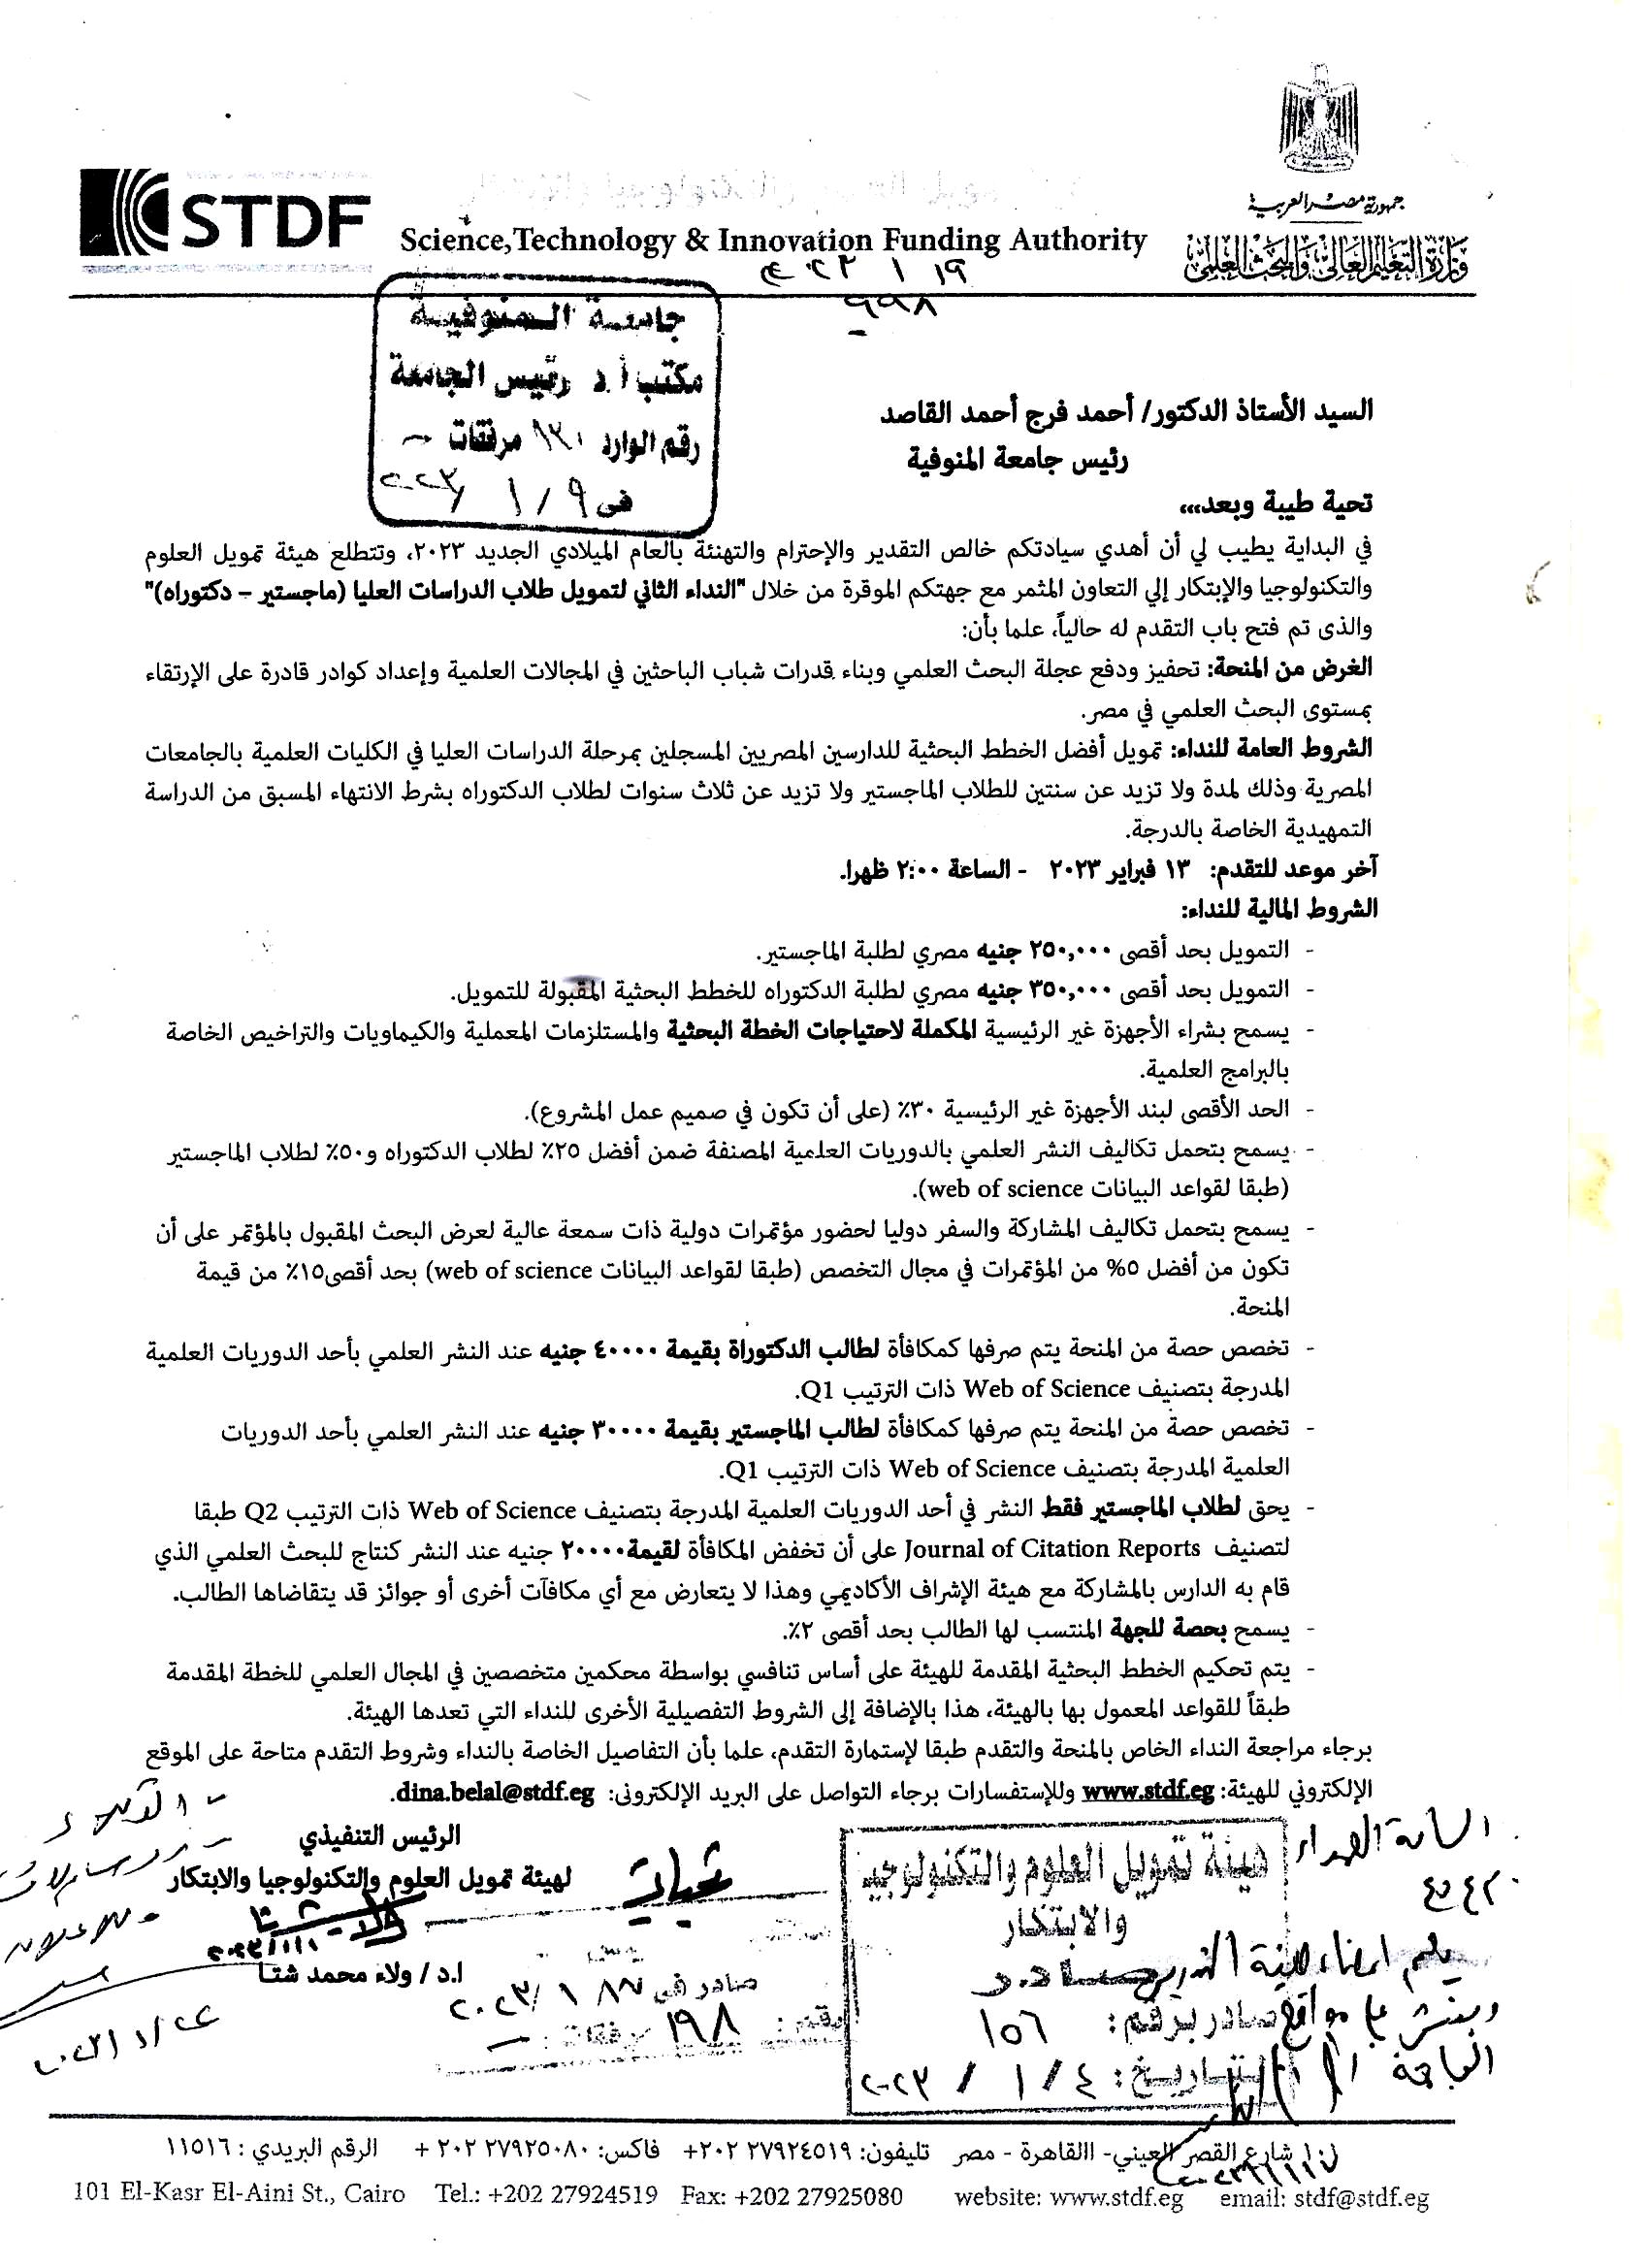 جمهورية مصر العربية
وزارة التعليم العالي والبحث العلمي
STDF
Science,Technology & Innovation Funding Authority
١٩
٩٩٨
جامعة المنوفية
مكتب أ.د رئيس الجامعة
رقم الوارد ١٣٠ مرفقات -
فى ١/٩ ٢٠٢٣
السيد الأستاذ الدكتور/ أحمد فرج أحمد القاصد
رئيس جامعة المنوفية
تحية طيبة وبعد،،،
في البداية يطيب لي أن أهدي سيادتكم خالص التقدير والإحترام والتهنئة بالعام الميلادي الجديد ٢٠٢٣، وتتطلع هيئة تمويل العلوم
والتكنولوجيا والإبتكار إلي التعاون المثمر مع جهتكم الموقرة من خلال "النداء الثاني لتمويل طلاب الدراسات العليا (ماجستير – دكتوراه)"
والذى تم فتح باب التقدم له حالياً، علما بأن:
الغرض من المنحة: تحفيز ودفع عجلة البحث العلمي وبناء قدرات شباب الباحثين في المجالات العلمية وإعداد كوادر قادرة على الإرتقاء
بمستوى البحث العلمي في مصر.
الشروط العامة للنداء: تمويل أفضل الخطط البحثية للدارسين المصريين المسجلين بمرحلة الدراسات العليا في الكليات العلمية بالجامعات
المصرية وذلك لمدة ولا تزيد عن سنتين للطلاب الماجستير ولا تزيد عن ثلاث سنوات لطلاب الدكتوراه بشرط الانتهاء المسبق من الدراسة
التمهيدية الخاصة بالدرجة.
آخر موعد للتقدم: ١٣ فبراير ٢٠٢٣ - الساعة ٢:٠٠ ظهرا.
الشروط المالية للنداء:
- التمويل بحد أقصى ٢٥٠,٠٠٠ جنيه مصري لطلبة الماجستير.
- التمويل بحد أقصى ٣٥٠,٠٠٠ جنيه مصري لطلبة الدكتوراه للخطط البحثية المقبولة للتمويل.
- يسمح بشراء الأجهزة غير الرئيسية المكملة لاحتياجات الخطة البحثية والمستلزمات المعملية والكيماويات والتراخيص الخاصة
بالبرامج العلمية.
- الحد الأقصى لبند الأجهزة غير الرئيسية ٣٠٪ (على أن تكون في صميم عمل المشروع).
- يسمح بتحمل تكاليف النشر العلمي بالدوريات العلمية المصنفة ضمن أفضل ٢٥٪ لطلاب الدكتوراه و٥٠٪ لطلاب الماجستير
(طبقا لقواعد البيانات web of science).
- يسمح بتحمل تكاليف المشاركة والسفر دوليا لحضور مؤتمرات دولية ذات سمعة عالية لعرض البحث المقبول بالمؤتمر على أن
تكون من أفضل ٥% من المؤتمرات في مجال التخصص (طبقا لقواعد البيانات web of science) بحد أقصى١٥٪ من قيمة
المنحة.
- تخصص حصة من المنحة يتم صرفها كمكافأة لطالب الدكتوراة بقيمة ٤٠٠٠٠ جنيه عند النشر العلمي بأحد الدوريات العلمية
المدرجة بتصنيف Web of Science ذات الترتيب Q1.
- تخصص حصة من المنحة يتم صرفها كمكافأة لطالب الماجستير بقيمة ٣٠٠٠٠ جنيه عند النشر العلمي بأحد الدوريات
العلمية المدرجة بتصنيف Web of Science ذات الترتيب Q1.
- يحق لطلاب الماجستير فقط النشر في أحد الدوريات العلمية المدرجة بتصنيف Web of Science ذات الترتيب Q2 طبقا
لتصنيف Journal of Citation Reports على أن تخفض المكافأة لقيمة٢٠٠٠٠ جنيه عند النشر كنتاج للبحث العلمي الذي
قام به الدارس بالمشاركة مع هيئة الإشراف الأكاديمي وهذا لا يتعارض مع أي مكافآت أخرى أو جوائز قد يتقاضاها الطالب.
- يسمح بحصة للجهة المنتسب لها الطالب بحد أقصى ٢٪.
- يتم تحكيم الخطط البحثية المقدمة للهيئة على أساس تنافسي بواسطة محكمين متخصصين في المجال العلمي للخطة المقدمة
طبقاً للقواعد المعمول بها بالهيئة، هذا بالإضافة إلى الشروط التفصيلية الأخرى للنداء التي تعدها الهيئة.
برجاء مراجعة النداء الخاص بالمنحة والتقدم طبقا لإستمارة التقدم، علما بأن التفاصيل الخاصة بالنداء وشروط التقدم متاحة على الموقع
الإلكتروني للهيئة: www.stdf.eg وللإستفسارات برجاء التواصل على البريد الإلكترونى: dina.belal@stdf.eg.
الرئيس التنفيذي
لهيئة تمويل العلوم والتكنولوجيا والابتكار
ا.د / ولاء محمد شتا
هيئة تمويل العلوم والتكنولوجيا
والابتكار
صادر برقم: ١٥٦
التاريخ: ٤ / ١ / ٢٠٢٣
السادة العمداء
صادر فى
رقم: ١٩٨ مرفقات: -
١٠١ شارع القصر العيني- االقاهرة - مصر تليفون: ٢٧٩٢٤٥١٩ ٢٠٢+ فاكس: ٢٧٩٢٥٠٨٠ ٢٠٢ + الرقم البريدي : ١١٥١٦
101 El-Kasr El-Aini St., Cairo Tel.: +202 27924519 Fax: +202 27925080 website: www.stdf.eg email: stdf@stdf.eg